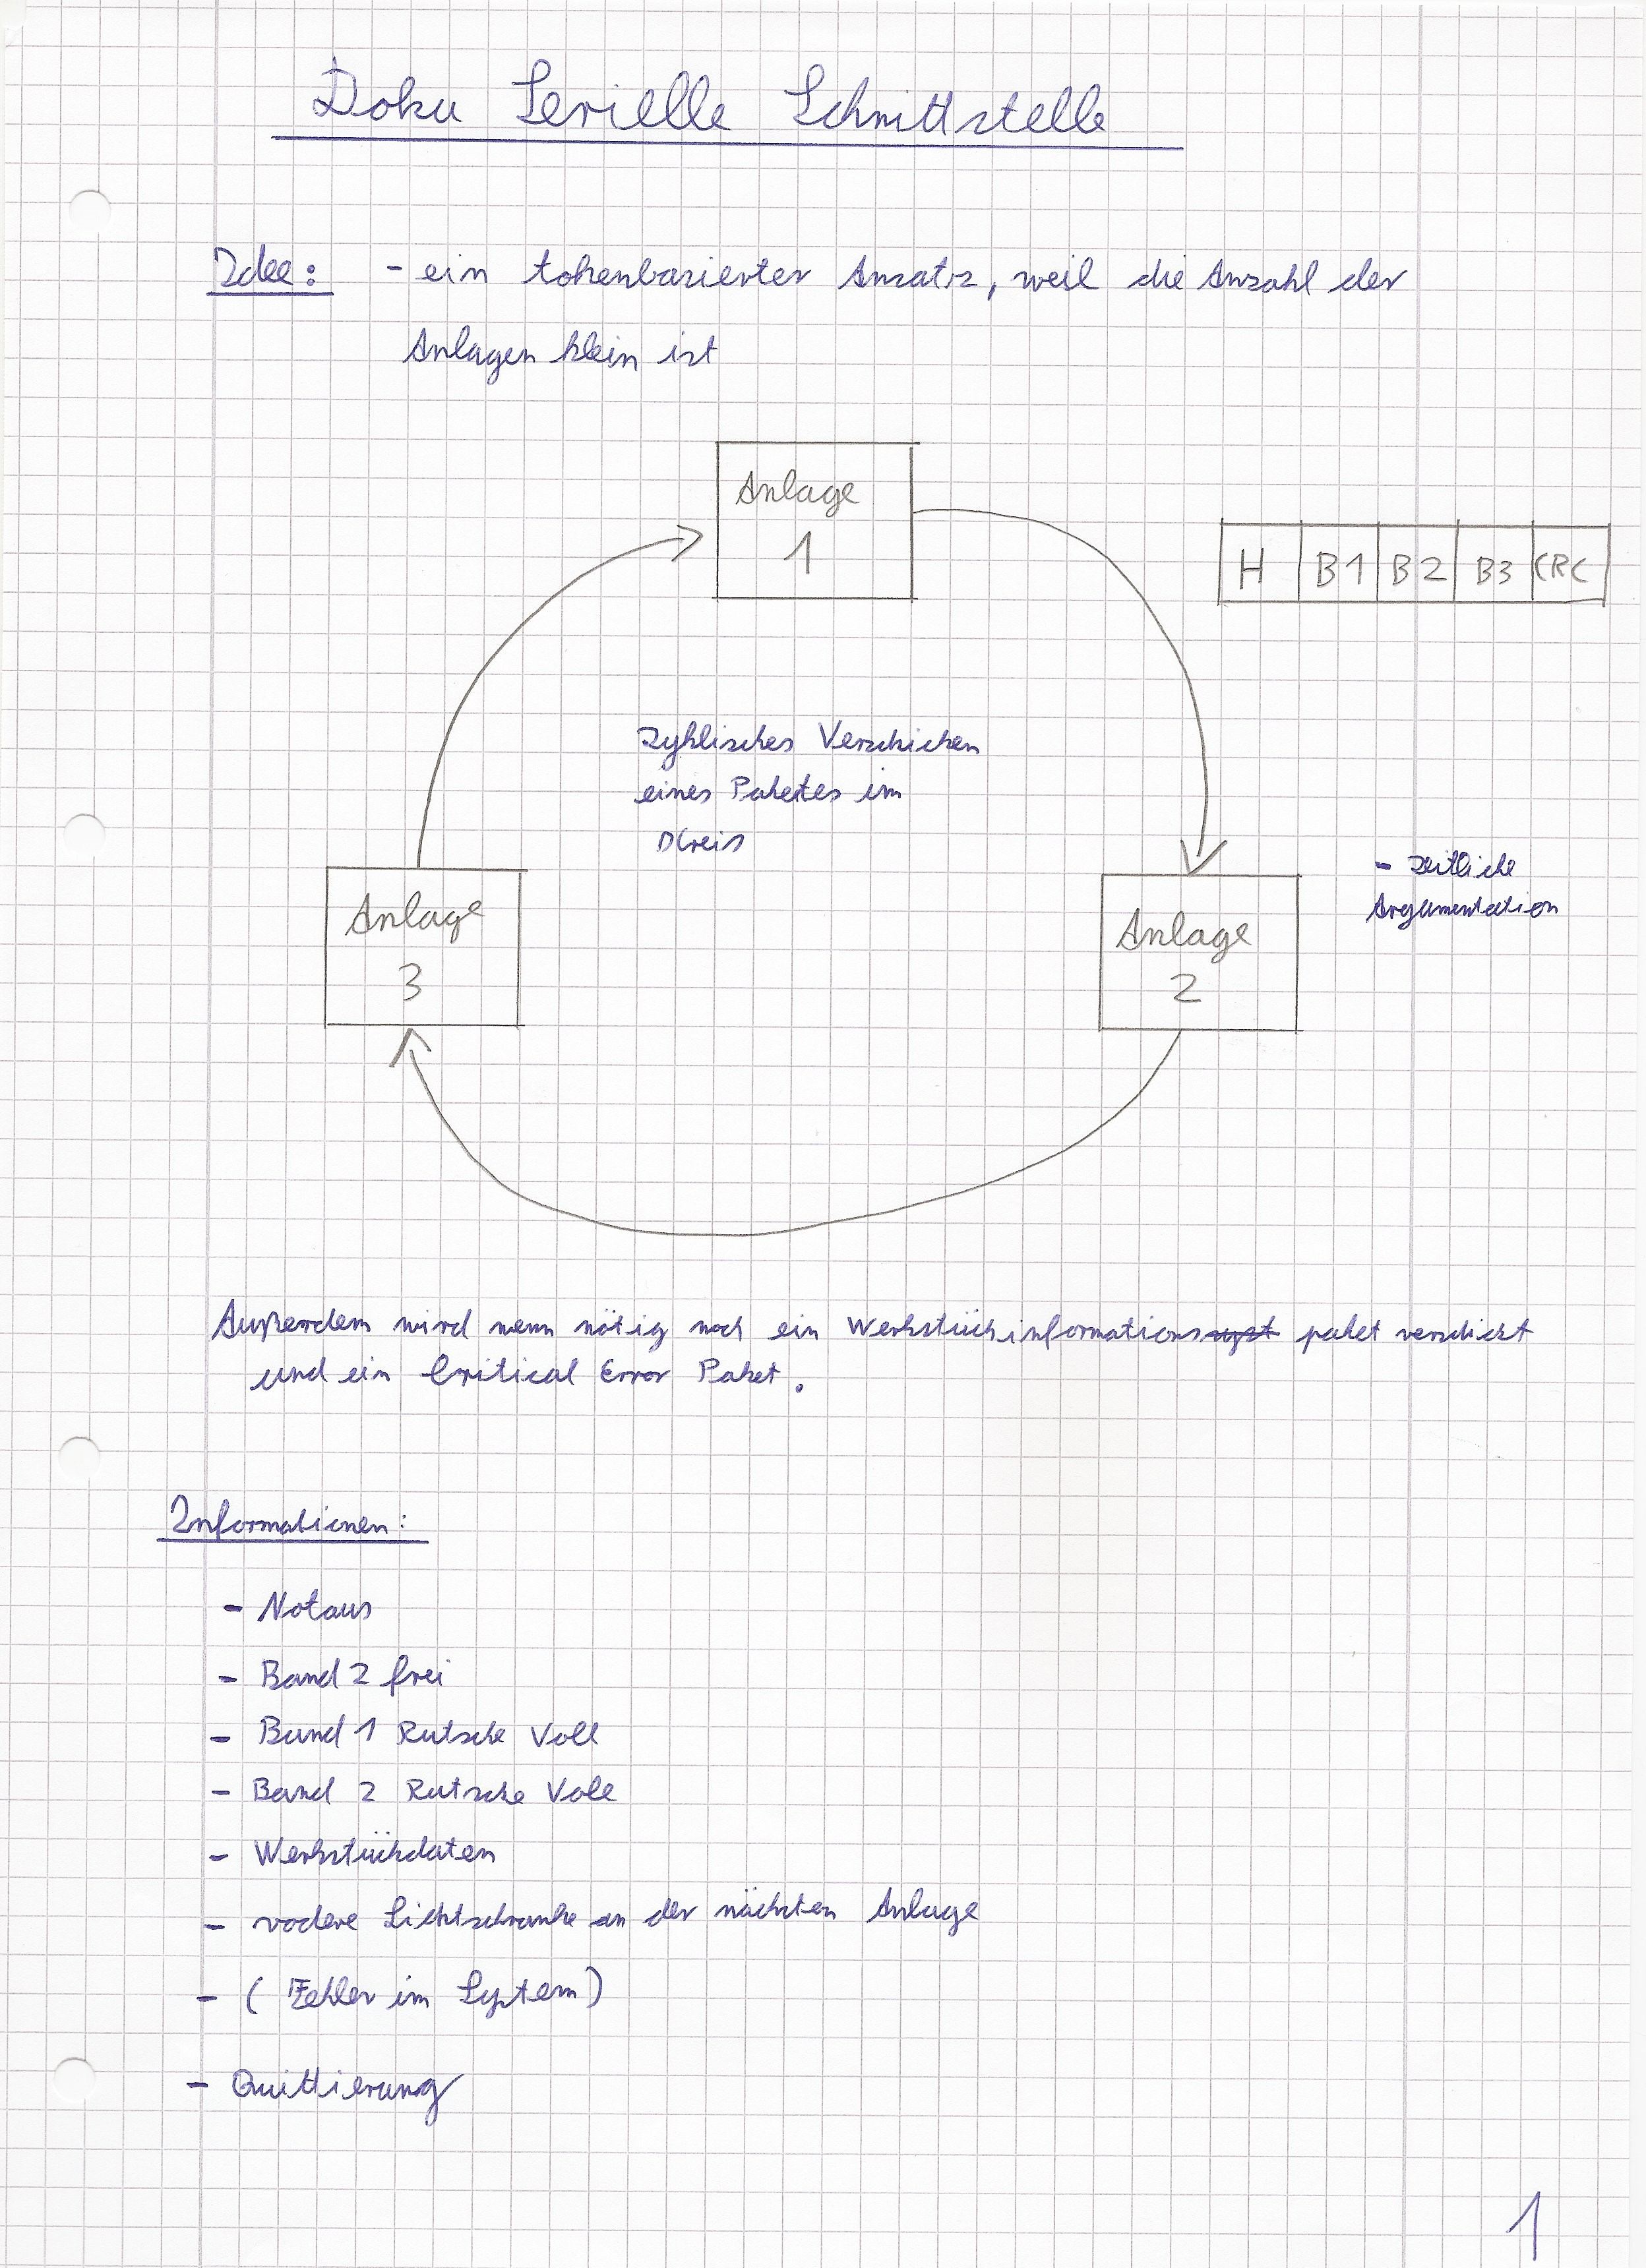 Doku Serielle Schnittstelle
Idee: - ein tokenbasierter Ansatz, weil die Anzahl der
Anlagen klein ist
Anlage
1
H B1 B2 B3 CRC
zyklisches Verschicken
eines Paketes im
Kreis
- zeitliche
Argumentation
Anlage
3
Anlage
2
Außerdem wird wenn nötig noch ein Werkstückinformations paket verschickt
und ein Critical Error Paket.
Informationen:
- Notaus
- Band 2 frei
- Band 1 Rutsche Voll
- Band 2 Rutsche Voll
- Werkstückdaten
- vodere Lichtschranke an der nächsten Anlage
- (Fehler im System)
- Quittierung
1